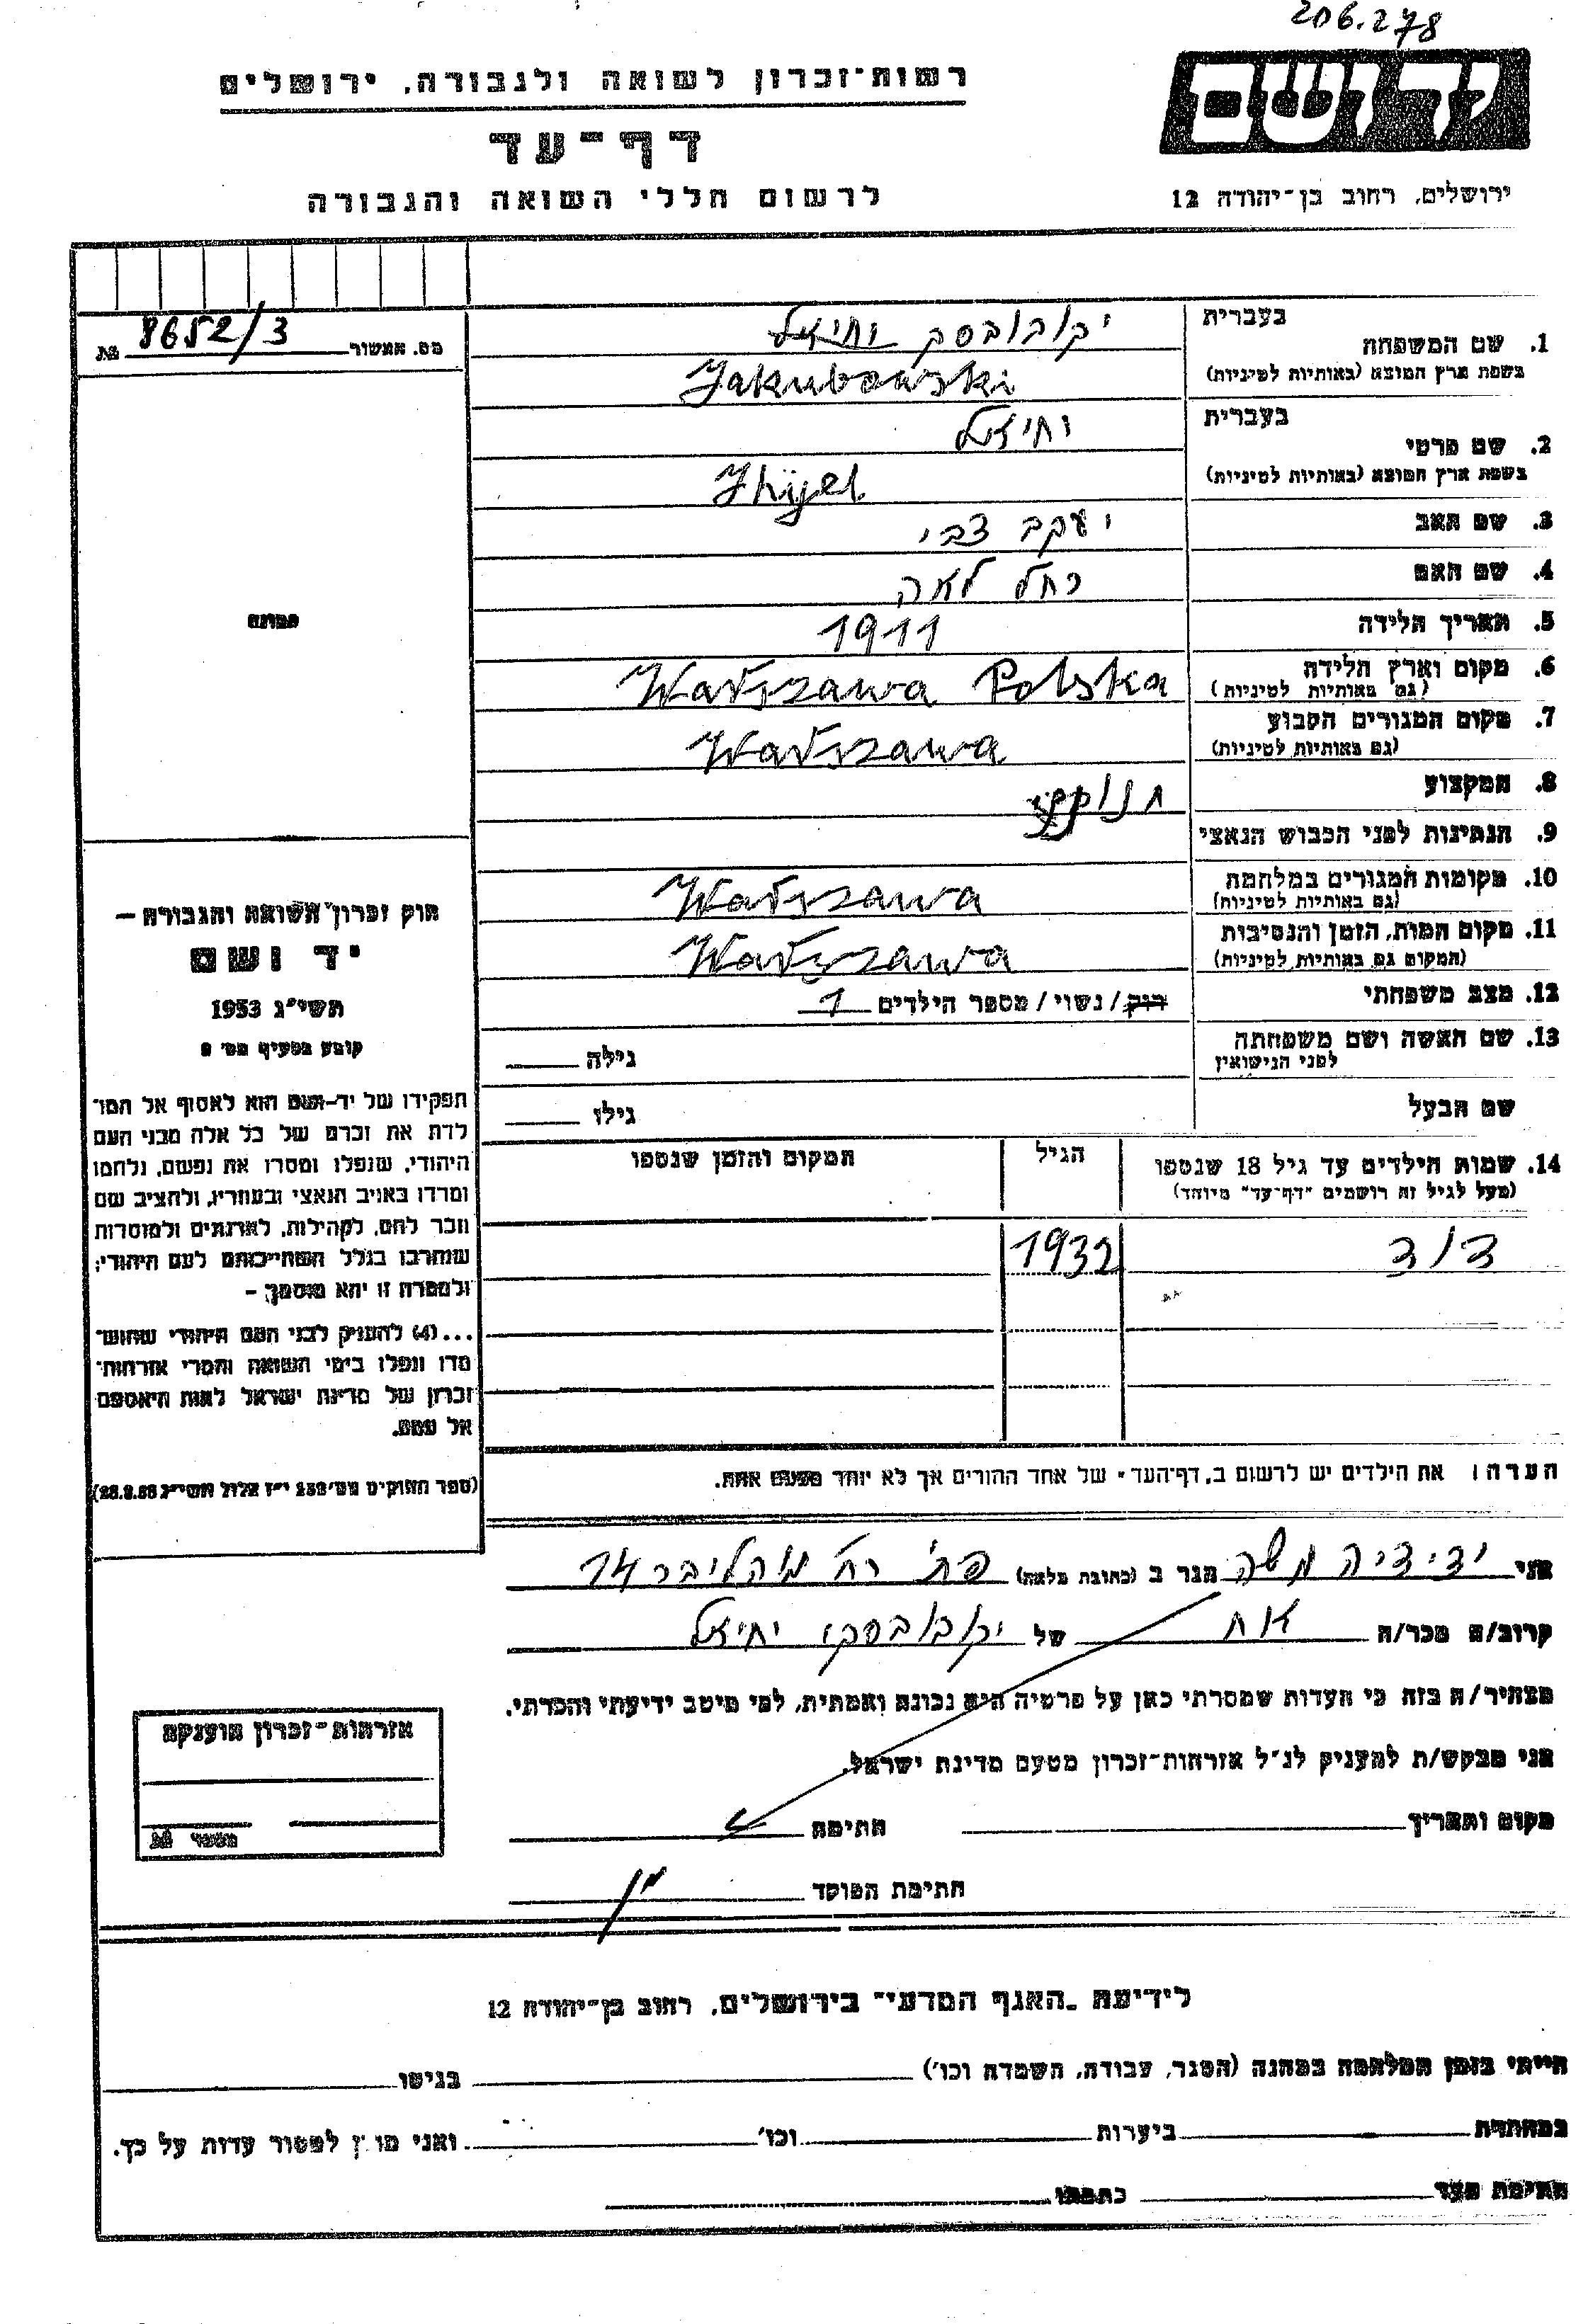 206.278
יד ושם
רשות־זכרון לשואה ולגבורה, ירושלים
דף־עד
לרשום חללי השואה והגבורה
ירושלים, רחוב בן־יהודה 12
מס. אשור № 8652/3
1. שם המשפחה
בעברית יקובובסקי יחיאל
בשפת ארץ המוצא (באותיות לטיניות) Jakubowski
2. שם פרטי
בעברית יחיאל
בשפת ארץ המוצא (באותיות לטיניות) Jhijel
3. שם האב יעקב צבי
4. שם האם רחל לאה
5. תאריך הלידה 1911
6. מקום וארץ הלידה
(גם באותיות לטיניות) Warszawa Polska
7. מקום המגורים הקבוע
(גם באותיות לטיניות) Warszawa
8. המקצוע
9. הנתינות לפני הכבוש הנאצי
10. מקומות המגורים במלחמה
(גם באותיות לטיניות) Warszawa
11. מקום המות, הזמן והנסיבות
(המקום גם באותיות לטיניות) Warszawa
12. מצב משפחתי רווק / נשוי / מספר הילדים 1
13. שם האשה ושם משפחתה
לפני הנישואין גילה
שם הבעל גילו
14. שמות הילדים עד גיל 18 שנספו
(מעל לגיל זה רושמים "דף־עד" מיוחד)
הגיל
המקום והזמן שנספו
דוד 1932
תמונה
חוק זכרון השואה והגבורה —
יד ושם
תשי"ג 1953
קובע בסעיף מס'
תפקידו של יד-ושם הוא לאסוף אל המו־
לדת את זכרם של כל אלה מבני העם
היהודי, שנפלו ומסרו את נפשם, נלחמו
ומרדו באויב הנאצי ובעוזריו, ולהציב שם
וזכר להם, לקהילות, לארגונים ולמוסדות
שנחרבו בגלל השתייכותם לעם היהודי;
ולמטרה זו יהא מוסמך —
...(4) להעניק לבני העם היהודי שהוש־
מדו ונפלו בימי השואה והמרי אזרחות־
זכרון של מדינת ישראל לאות היאספם
אל עמם.
(ספר החוקים מס' 132 י"ז אלול תשי"ג 28.8.53)
הערה: את הילדים יש לרשום ב„דף־העד" של אחד ההורים אך לא יותר מפעם אחת.
אני ידידיה משה הגר ב (כתובת מלאה) פת' רח' מוהליבר 14
קרוב/ה מכר/ה אח של יקובובסקי יחיאל
מצהיר/ה בזה כי העדות שמסרתי כאן על פרטיה היא נכונה ואמתית, לפי מיטב ידיעתי והכרתי.
אני מבקש/ת להעניק לנ"ל אזרחות־זכרון מטעם מדינת ישראל.
מקום ותאריך חתימה
חתימת הפוקד
אזרחות־זכרון מוענקת
מספר №
לידיעת „האגף המדעי" בירושלים, רחוב בן־יהודה 12
הייתי בזמן המלחמה במחנה (הסגר, עבודה, השמדה וכו') בגיטו
במחתרת ביערות וכו' ואני מוכן למסור עדות על כך.
חתימת העד כתבתו